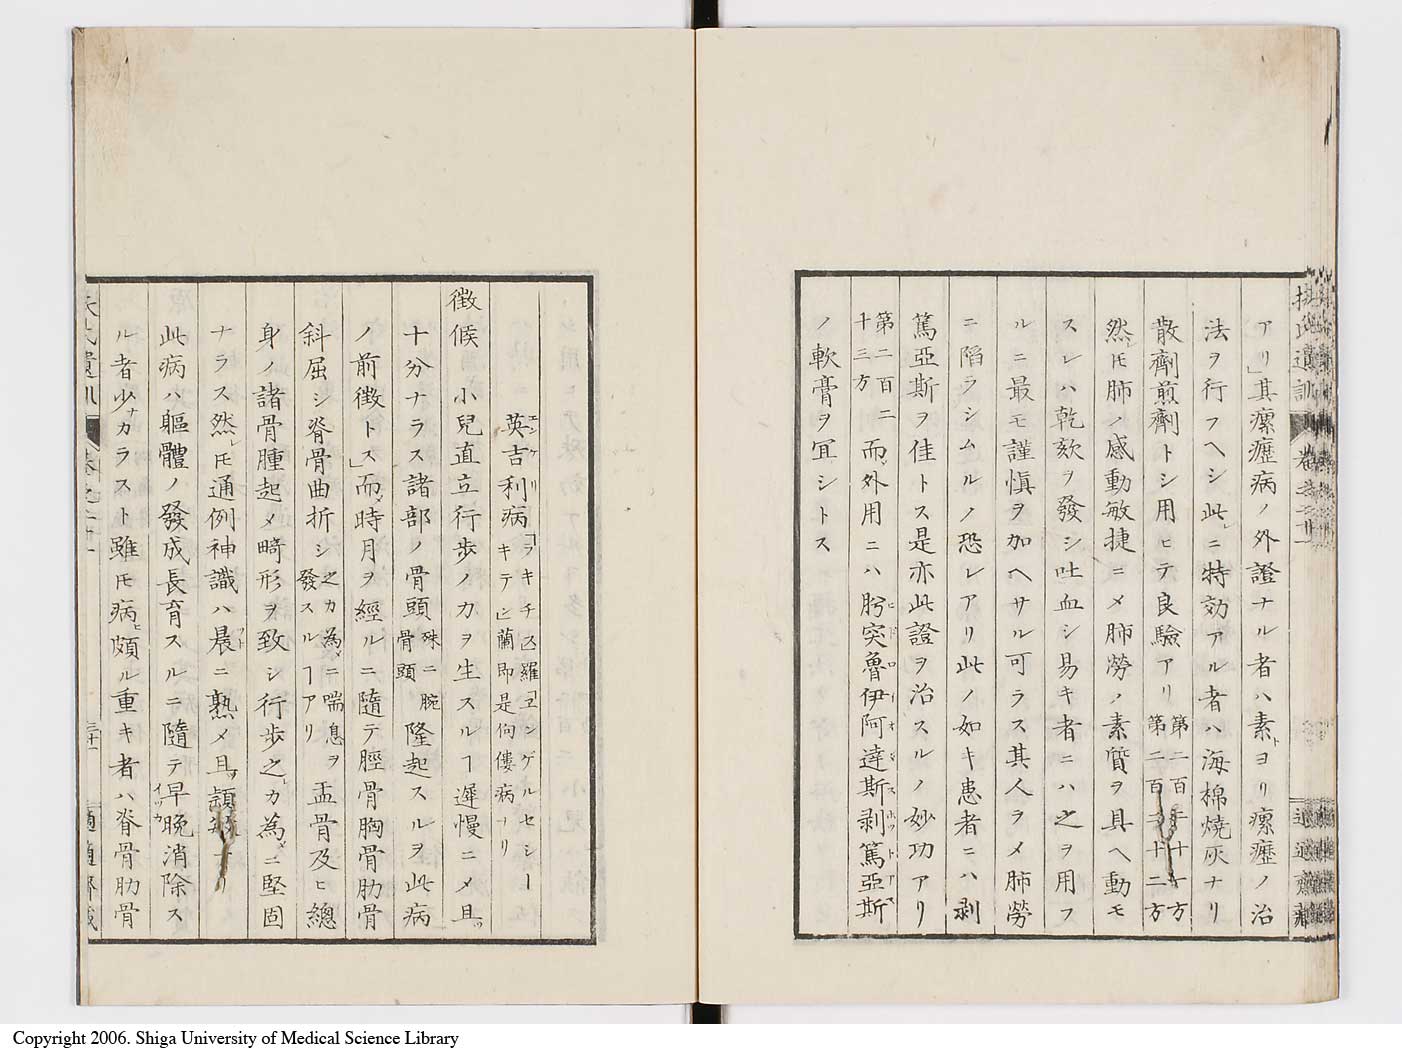 アリ」其瘰癧病ノ外證ナル者ハ素トヨリ瘰癧ノ治
法ヲ行フヘシ此レニ特効アル者ハ海棉燒灰ナリ
散劑煎劑トシ用ヒテ良驗アリ 第二百 十一方 第二百二十二方
然レ𪜈肺ノ感動敏捷ニメ肺勞ノ素質ヲ具ヘ動モ
スレハ乾欬ヲ發シ吐血シ易キ者ニハ之ヲ用フ
ルニ最モ謹愼ヲ加ヘサル可ラス其人ヲメ肺勞
ニ陷ラシムルノ恐レアリ此ノ如キ患者ニハ剥
篤亞斯ヲ佳トス是亦此證ヲ治スルノ妙功アリ
第二百二十三方 而外用ニハ肹突魯伊阿達斯剥篤亞斯
ノ軟膏ヲ冝シトス
扶氏遺訓 卷之二十一
英吉利病
蘭即是佝僂病ナリ
徴候 小兒直立行歩ノカヲ生スルヿ遲慢ニメ且ツ
十分ナラス諸部ノ骨頭 殊ニ腕骨頭 隆起スルヲ此病
ノ前徴トス」而メ時月ヲ經ルニ隨テ脛骨胸骨肋骨
斜屈シ脊骨曲折シ 之カ為メニ喘息ヲ發スルヿアリ 盂骨及ヒ總
身ノ諸骨腫起メ畸形ヲ致シ行歩之レカ為メニ堅固
ナラス然レ𪜈通例神識ハ晨ニ熟メ且ツ頴敏ナリ
此病ハ軀體ノ發成長育スルニ隨テ早晩消除ス
ル者少ナカラスト雖𪜈病ヒ頗ル重キ者ハ脊骨肋骨
扶氏遺訓 卷之二十一
Copyright 2006. Shiga University of Medical Science Library